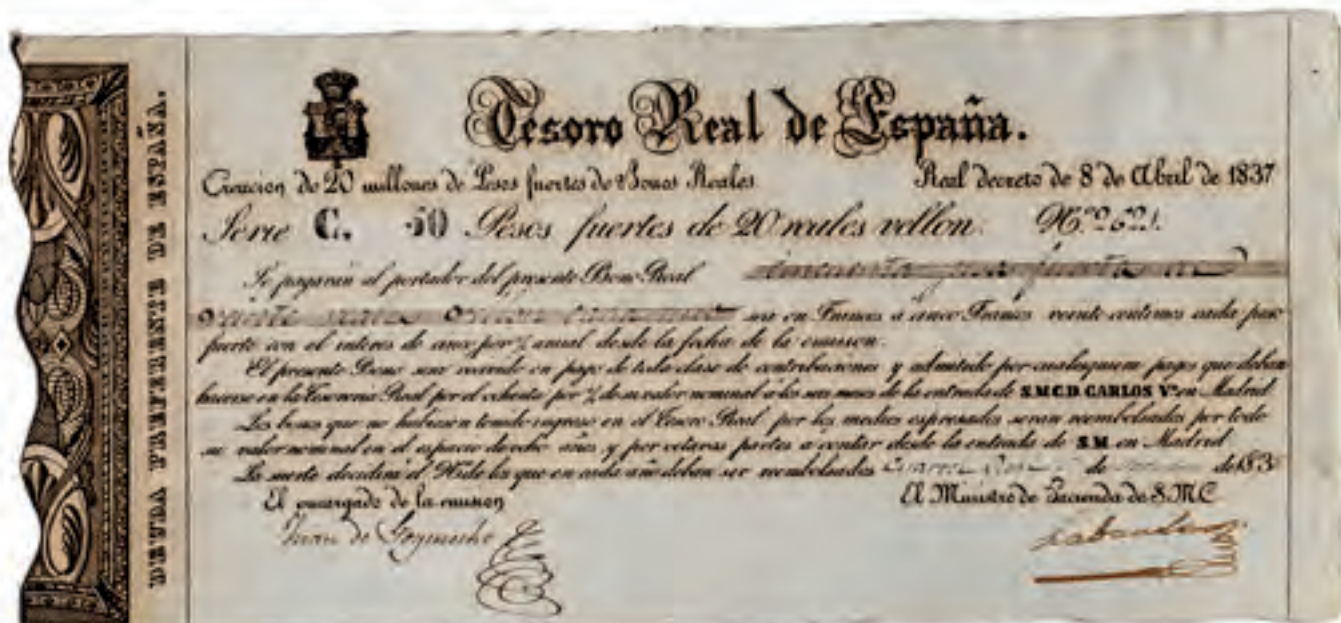 DEUDA PREFERENTE DE ESPAÑA.
Tesoro Real de España.
Creacion de 20 millones de Pesos fuertes de Bonos Reales. Real decreto de 8 de Abril de 1837
Serie C. 50 Pesos fuertes de 20 reales vellon.
Se pagarán al portador del presente Bono Real cincuenta
sea en Francos á cinco Francos veinte centimos cada peso
fuerte con el interes de cinco por % anual desde la fecha de la emision.
El presente Bono sera recivido en pago de toda clase de contribuciones y admitido por cualesquiera pagos que deban
hacerse en la Tesoreria Real por el ochenta por % de su valor nominal á los seis meses de la entrada de S.M.C.D. CARLOS V.º en Madrid
Los bonos que no hubiesen tenido ingreso en el Tesoro Real por los medios espresados seran reembolsados por todo
su valor nominal en el espacio de ocho años y por octavas partes a contar desde la entrada de S.M. en Madrid.
La suerte decidira el Nº de los que en cada año deban ser reembolsados de de 183
El encargado de la emision El Ministro de Hacienda de S.M.C
Juan de